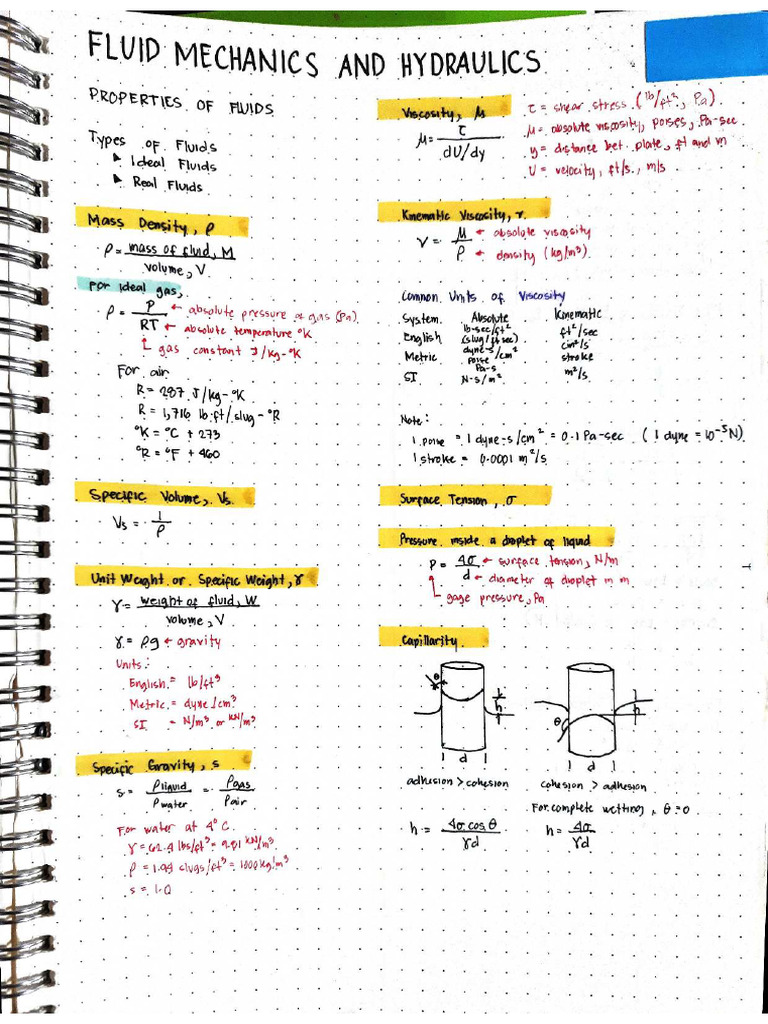 FLUID MECHANICS AND HYDRAULICS
PROPERTIES OF FLUIDS
Types of Fluids
▸ Ideal Fluids
▸ Real Fluids
Mass Density, ρ
ρ = mass of fluid, M / volume, V
For Ideal gas,
ρ = P / RT
← absolute pressure of gas (Pa)
← absolute temperature °K
↳ gas constant J/kg-°K
For air
R = 287 J/kg-°K
R = 1,716 lb.ft/slug-°R
°K = °C + 273
°R = °F + 460
Specific Volume, Vs.
Vs = 1/ρ
Unit Weight or Specific Weight, γ
γ = weight of fluid, W / volume, V
γ = ρg ← gravity
Units:
English = lb/ft³
Metric = dyne/cm³
SI = N/m³ or kN/m³
Specific Gravity, s
s = ρliquid / ρwater = ρgas / ρair
For water at 4°C.
γ = 62.4 lbs/ft³ = 9.81 kN/m³
ρ = 1.94 slugs/ft³ = 1000 kg/m³
s = 1.0
Viscosity, μ
μ = τ / dU/dy
τ = shear stress (lb/ft², Pa)
μ = absolute viscosity, poises, Pa-sec
y = distance bet. plate, ft and m
U = velocity, ft/s., m/s
Kinematic Viscosity, ν.
ν = μ / ρ
← absolute viscosity
← density (kg/m³)
Common Units of Viscosity
System Absolute Kinematic
English lb-sec/ft² (slug/ft sec) ft²/sec
Metric dyne-s/cm² poise cm²/s stroke
SI Pa-s N-s/m² m²/s
Note:
1 poise = 1 dyne-s/cm² = 0.1 Pa-sec (1 dyne = 10⁻⁵N)
1 stroke = 0.0001 m²/s
Surface Tension, σ
Pressure inside a droplet of liquid
P = 4σ / d
← surface tension, N/m
← diameter of droplet in m
↳ gage pressure, Pa
Capillarity
θ
h
d
adhesion > cohesion
h = 4σ cos θ / γd
θ
h
d
cohesion > adhesion
For complete wetting, θ = 0
h = 4σ / γd